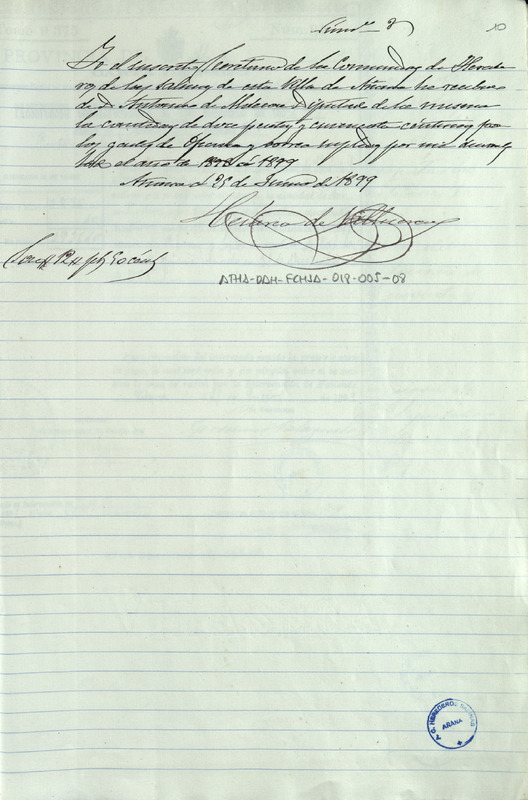 Num.º 8
10
Yo el suscrito Secretario de la Comunidad de Herede
ros de las Salinas de esta Villa de Añana he recibido
de D. Antonino de diputado de la misma
la cantidad de doce pesetas y cincuenta céntimos por
los gastos de y correo suplidos por mi duran
te el año de 1898 á 1899
Añana á 25 de Junio de 1899
de
Son 12 pts 50 cént
ATHA-DAH-FCHSA-018-005-08
HEREDEROS SALINAS
AÑANA